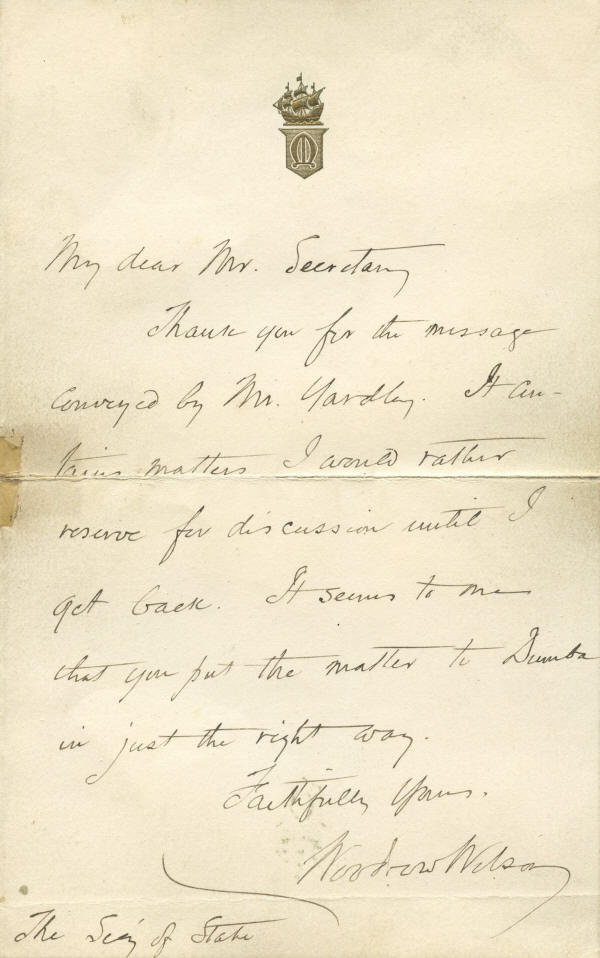 My dear Mr. Secretary
Thank you for the message
conveyed by Mr. Yardley. It con-
tains matters I would rather
reserve for discussion until I
get back. It seems to me
that you put the matter to Dumba
in just the right way.
Faithfully Yours.
Woodrow Wilson
The Sec'y of State